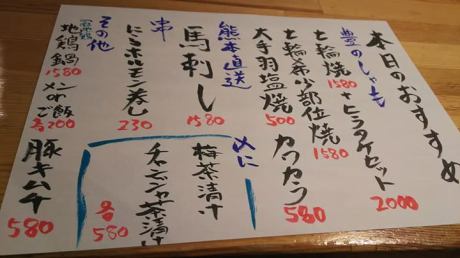 本日のおすすめ
豊のしゃも
七輪焼
1580
+ヒラタケセット
2000
七輪希少部位焼
1580
大手羽塩焼
500
カワカラ
580
熊本直送
馬刺し
1580
〆に
梅茶漬け
チャンジャ茶漬け
各580
串
にらホルモン巻し
230
その他
地鶏鍋
1580
メンorご飯
各200
豚キムチ
580